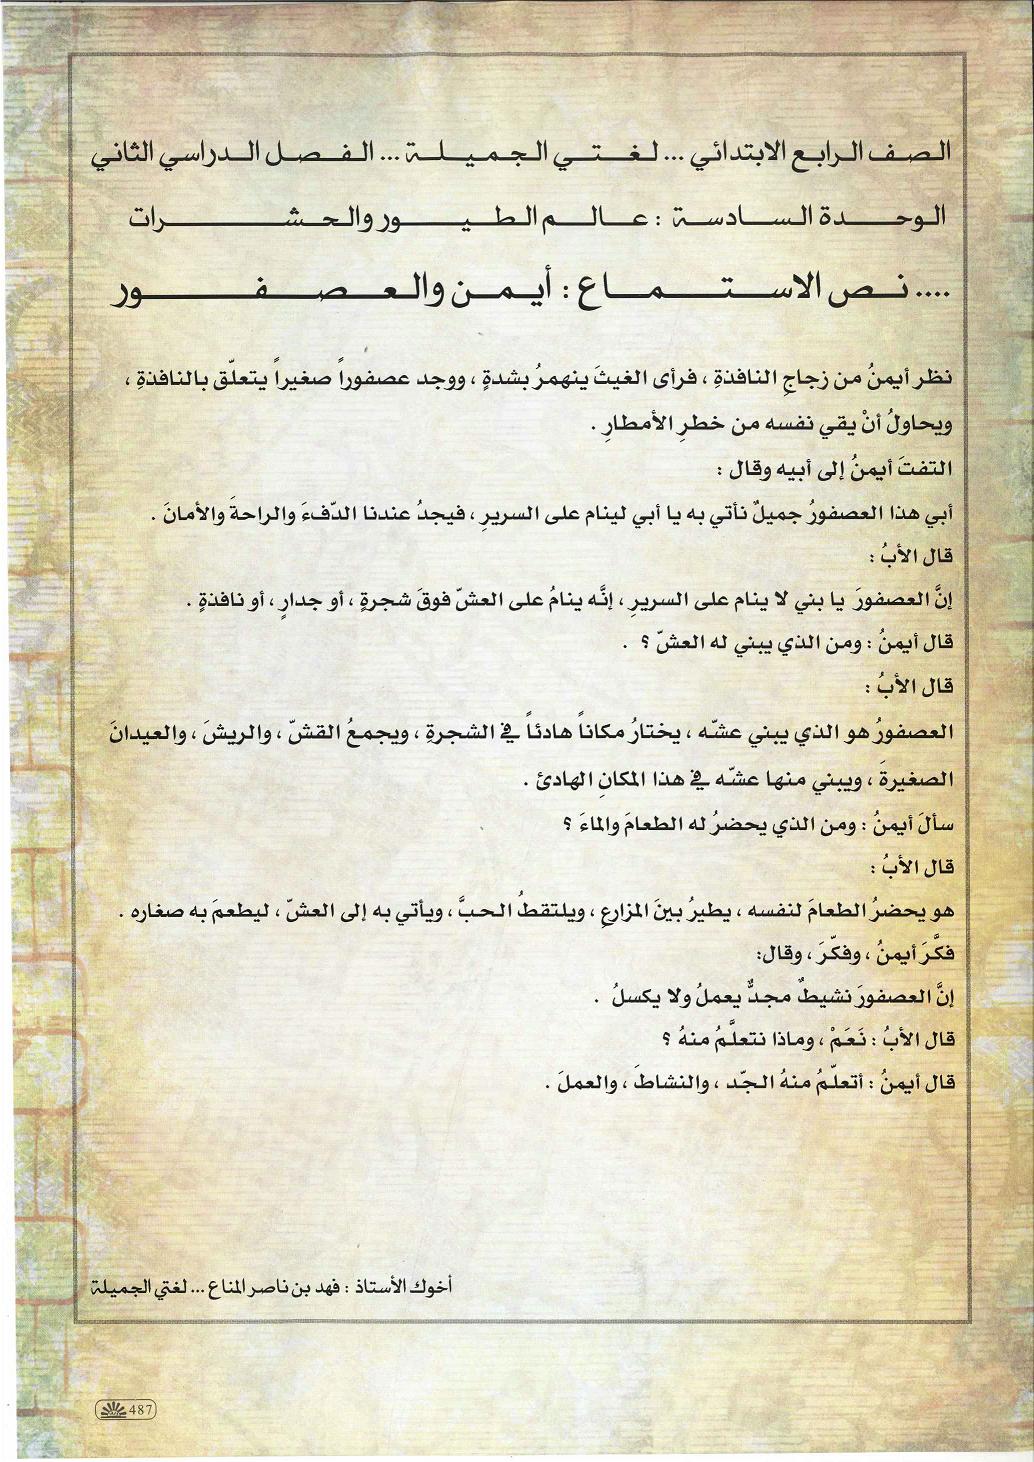 الصف الرابع الابتدائي ... لغتي الجميلة ... الفصل الدراسي الثاني
الوحدة السادسة : عالم الطيور والحشرات
.... نص الاستماع : أيمن والعصفور
نظر أيمنُ من زجاجِ النافذةِ ، فرأى الغيثَ ينهمرُ بشدةٍ ، ووجد عصفوراً صغيراً يتعلّق بالنافذةِ ،
ويحاولُ أنْ يقي نفسه من خطرِ الأمطارِ .
التفتَ أيمنُ إلى أبيه وقال :
أبي هذا العصفورُ جميلٌ نأتي به يا أبي لينام على السريرِ ، فيجدُ عندنا الدّفءَ والراحةَ والأمانَ .
قال الأبُ :
إنَّ العصفورَ يا بني لا ينام على السريرِ ، إنَّه ينامُ على العشّ فوقَ شجرةٍ ، أو جدارٍ ، أو نافذةٍ .
قال أيمنُ : ومن الذي يبني له العشّ ؟ .
قال الأبُ :
العصفورُ هو الذي يبني عشّه ، يختارُ مكاناً هادئاً في الشجرةِ ، ويجمعُ القشّ ، والريشَ ، والعيدانَ
الصغيرةَ ، ويبني منها عشّه في هذا المكانِ الهادئ .
سألَ أيمنُ : ومن الذي يحضرُ له الطعامَ والماءَ ؟
قال الأبُ :
هو يحضرُ الطعامَ لنفسه ، يطيرُ بينَ المزارعِ ، ويلتقطُ الحبَّ ، ويأتي به إلى العشّ ، ليطعمَ به صغاره .
فكَّرَ أيمنُ ، وفكّرَ ، وقال:
إنَّ العصفورَ نشيطٌ مجدٌّ يعملُ ولا يكسلُ .
قال الأبُ : نَعَمْ ، وماذا نتعلَّمُ منهُ ؟
قال أيمنُ : أتعلّمُ منهُ الجّد ، والنشاطَ ، والعملَ .
أخوك الأستاذ : فهد بن ناصر المناع ... لغتي الجميلة
487